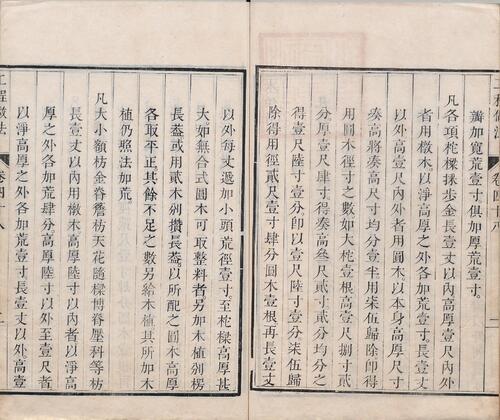 瓣加寬荒壹寸俱加厚荒壹寸
凡各項柁樑採步金長壹丈以內高壹尺內外
者用橔木以淨高厚之外各加荒壹寸長壹丈
以外高壹尺內外者用圓木以本身高厚尺寸
湊高將湊高尺寸均分壹半用柒伍歸除即得
用圓木徑寸之數如大柁壹根高壹尺捌寸貳
分厚壹尺肆寸得湊高叁尺貳寸貳分均分之
得壹尺陸寸壹分即以壹尺陸寸壹分柒伍歸
除得用徑貳尺壹寸肆分圓木壹根再長壹丈
以外每丈遞加小頭荒徑壹寸至柁樑高厚甚
大如無合式圓木可取整料者另加木植別楞
長葢或用貳木別攢長葢以所配之圓木高厚
各取平正其餘不足之數另給木植其所加木
植仍照法加荒
凡大小額枋金脊簷枋天花隨樑博脊壓科等枋
長壹丈以內用橔木高厚陸寸以內者以淨高
厚之外各加荒肆分高厚陸寸以外至壹尺者
以淨高厚之外各加荒壹寸長壹丈以外高壹
工程做法
卷四十八